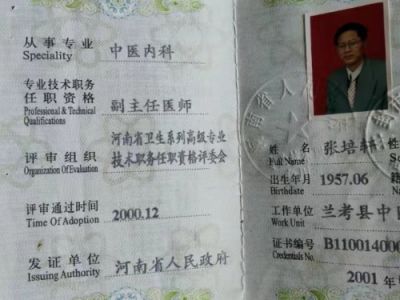 从事专业 中医内科
Speciality
专业技术职务
任职资格 副主任医师
Professional & Technical
Qualifications
河南省卫生系列高级专业
评审组织 技术职务任职资格评委会
Organization Of Evaluation
评审通过时间 2000.12
Time Of Adoption
发证单位 河南省人民政府
Issuing Authority
姓名 张培
Full Name
出生年月 1957.06
Birthdate
工作单位 兰考县中
Work Unit
证书编号 B110014000
Credentials No.
2001 年